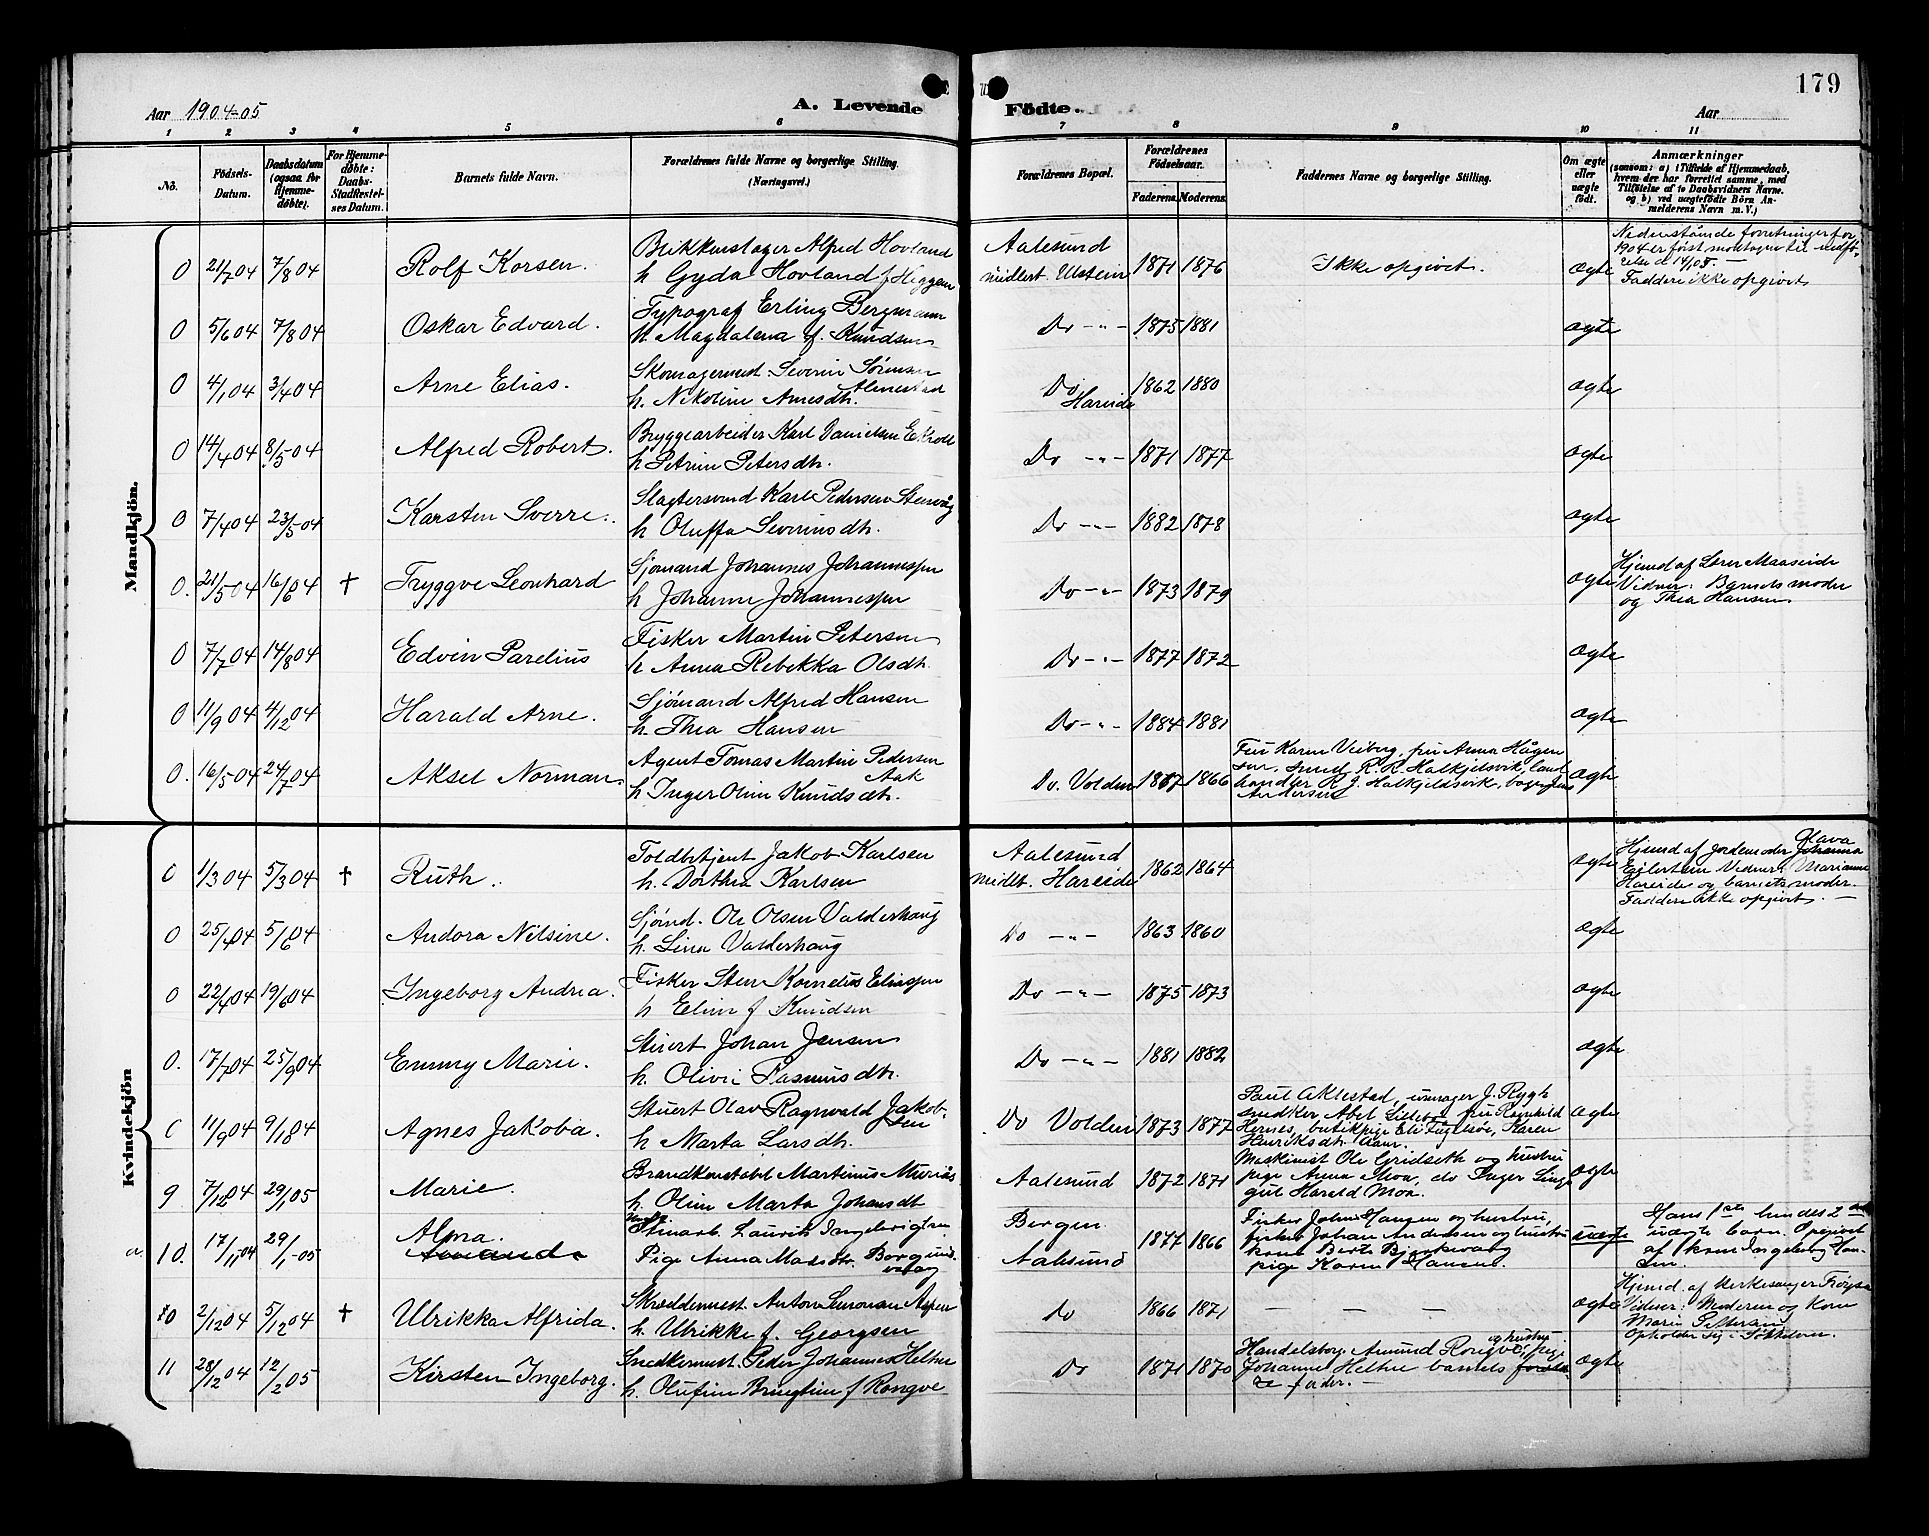 179
Aar 1904-05
A. Levende Födte.
Aar
1 2 3 4 5 6 7 8 9 10 11
No.
Födsels-Datum.
Daabsdatum (ogsaa for Hjemme-döbte).
For Hjemme-döbte: Daabs-Stadfæstelses Datum.
Barnets fulde Navn.
Forældrenes fulde Navne og borgerlige Stilling. (Næringsvei.)
Forældrenes Bopæl.
Forældrenes Födselsaar.
Faderens. Moderens.
Faddernes Navne og borgerlige Stilling.
Om ægte eller uægte födt.
Anmærkninger
(saasom: a) i Tilfælde af Hjemmedaab, hvem der har forrettet samme, med Tilföielse af to Daabsvidners Navne, og b) ved uægtefödte Börn Anmelderens Navn m. V.)
Mandkjön.
0 21/7 04 7/8 04 Rolf Korsen. Blikkenslager Alfred Hovland
h Gyda Hovland f Heggem Aalesund midlert. Ulstein 1871 1876 Ikke opgivet. ægte
Nedenstående forretninger for 1904 er först modtagne til
Faddere ikke opgivet
0 5/6 04 7/8 04 Oskar Edvard. Typograf Erling Bergmann
h Magdalena f. Knudsen Do -"- 1875 1881 ægte
0 4/1 04 3/4 04 Arne Elias. Skomagermest. Severin Sörensen Almestad
h. Nikoline Arnesdtr. Do Hareide 1862 1880 ægte
0 14/4 04 8/5 04 Alfred Robert. Bryggearbeider Karl Danielsen Ekroll
h Petrine Petersdtr. Do -"- 1871 1877 ægte
0 7/4 04 23/5 04 Karsten Sverre. Slagtersvend Karl Pedersen Stenvåg
h Oluffa Severinsdtr. Do -"- 1882 1878 ægte
0. 21/5 04 16/6 04 † Tryggve Leonhard Sjömand Johannes Johannessen
h Johanne Johannessen Do -"- 1873 1879 ægte
Hjemd af Lærer Maaseide
Vidner: Barnets moder
og Thea Hansen
0 7/7 04 14/8 04 Edvin Parelius Fisker Martin Petersen
h Anna Rebekka Olsdtr. Do -"- 1877 1872 ægte
0 11/9 04 4/12 04 Harald Arne. Sjömand Alfred Hansen
h. Thea Hansen Do -"- 1884 1881 ægte
0. 16/5 04 24/7 04 Aksel Norman. Agent Tomas Martin Pedersen Aak
h Inger Oline Knudsdtr. Do. Volden 1867 1866 ægte
Fru Karen Viiberg, fru Anna Hågen
sen, smed R. R. Halkjelsvik, land
handler R. J. Halkjeldsvik,
Andersen
Kvindekjön
0 1/3 04 5/3 04 † Ruth. Toldbetjent Jakob Karlsen
h. Dorthea Karlsen Aalesund midlt. Hareide 1862 1864 ægte
Hjemd af Jordemoder Olava
Eilertsen Vidner: Marianne
Hareide og barnets moder.
Faddere ikke opgivet. —
0 25/4 04 5/6 04 Andora Nilsine. Sjömd. Ole Olsen Valderhaug
h. Lina Valderhaug Do -"- 1863 1860 ægte
0 22/4 04 19/6 04 Ingeborg Andrea. Fisker Sten Kornelius Eliassen
h Eline f Knudsen Do -"- 1875 1873 ægte
0. 17/7 04 25/9 04 Emmy Marie. Stuert Johan Jensen
h. Olivie Rasmusdtr. Do -"- 1881 1882 ægte
0 11/9 04 9/10 04 Agnes Jakoba. Stuert Olav Ragnvald Jakobsen
h Marta Larsdtr. Do Volden 1873 1877 ægte
Paul Aklestad, urmager J. Rygh
snedker Abel Lillebö, fru Ragnhild
Hernes, butikpige Eli Fuglesöe, Karen
Henriksdtr. Aam.
9 7/12 04 29/1 05 Marie. Brandkonstabel Martinus Muriås
h. Oline Marta Johansdt Aalesund 1872 1871 ægte
Maskinist Ole Gridseth og hustru
pige Anna Moa, do Inger Linge
gut Harald Moa.
10. 17/11 04 29/1 05 Alma. Stenarb. Laurik Ingebrigtsen
Pige Anna Madsdtr. Borgund Bergen Aalesund 1877 1866 uægte
Fisker John Hansen og hustru,
fisker Johan Andersen og hustru
kone Berte Bjerkevaag
pige Karen Hansen.
Hans 1ste hendes 2det
uægte barn. Opgivet
af kone Ingeborg Han-
sen.
10 2/12 04 5/12 04 † Ulrikka Alfrida. Skreddermest. Anton Simonsen Aspen
h. Ulrikke f. Georgsen do 1866 1871 — — — ægte
Hjemd. af Kirkesanger Fröysa
Vidner: Moderen og Kone
Marie Pettersen
Opholder sig i Sökkelven.
11 28/12 04 12/2 05 Kirsten Ingeborg. Snedkermest. Peder Johannes Heltne
h. Olufine Bringtine f Rongve Do 1871 1870 ægte
Handelsborg. Amund Rongve og hustru, pige
Johanne Heltne barnets
fader.